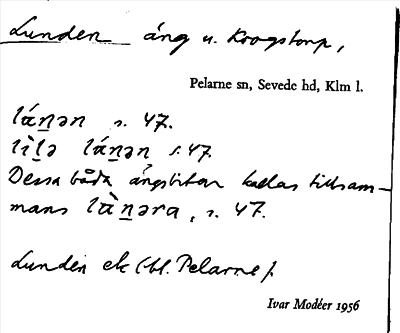 Lunden äng u. Krogstorp,
Pelarne sn, Sevede hd, Klm l.
lánən s. 47.
lìlə lánən s. 47.
Dessa båda ängsbitar kallas tillsam-
mans lànəra, s. 47.
Lunden ek (bl. Pelarne).
Ivar Modéer 1956